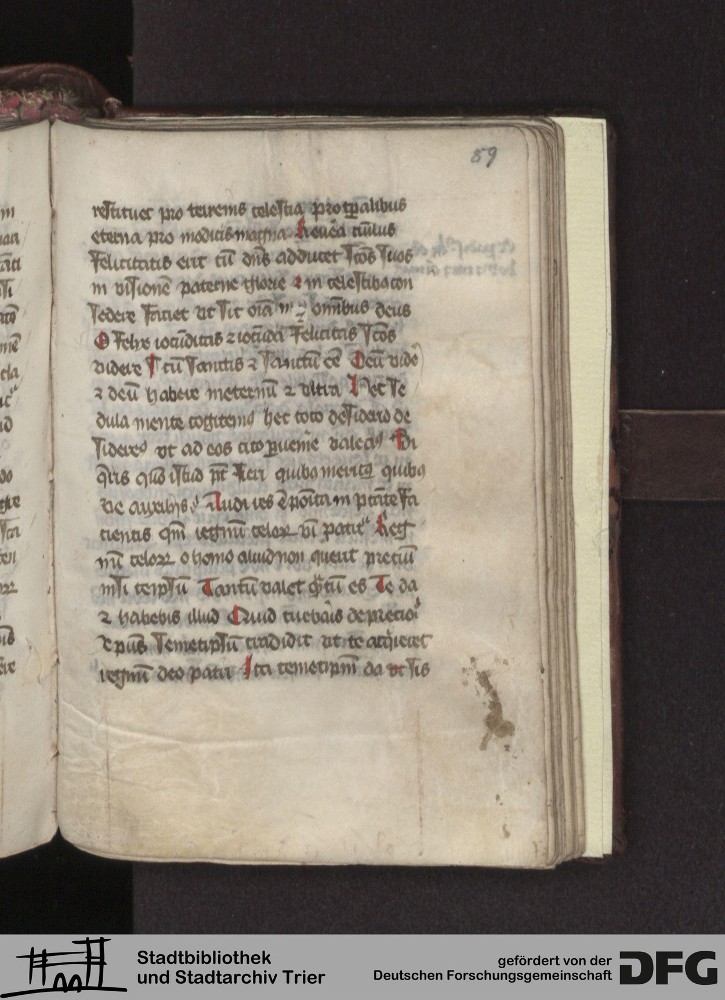 59
restituet pro terrenis celestia pro tp̄alibus
eterna pro modicis magna Reuēa cūulus
felicitatis erit cū dn̄s adducet sc̄os suos
in visionē paterne glorie ⁊ in celestibꝰ con
sedere faciet vt sit oīa in omībus deus
O felix iocūditas ⁊ iocūda felicitas sc̄os
videre cū sanctis ⁊ sanctū eē Deū vidē
⁊ deū habere in eternū ⁊ vltra Hec se
dula mente cogitemꝰ hec toto desiderio de
sideremꝰ vt ad eos cito ꝑuenire valeamꝰ Si
q̄ris quō istud pt̄ fieri quibꝰ meritis quibꝰ
ve auxiliis Audi res ē poīta in ptāte fa
cientis qm̄ regnū celoꝝ vī patitᷣ Reg
nū celoꝝ o homo aliud non querit preciū
nisi teipsū Tantū valet q̄tū es Te da
⁊ habebis illud Quid turbaris de precio
xp̄us semetipsū tradidit vt te acq̄reret
regnū deo patri Ita temetipm̄ da vt sis
Stadtbibliothek
und Stadtarchiv Trier
gefördert von der
Deutschen Forschungsgemeinschaft
DFG